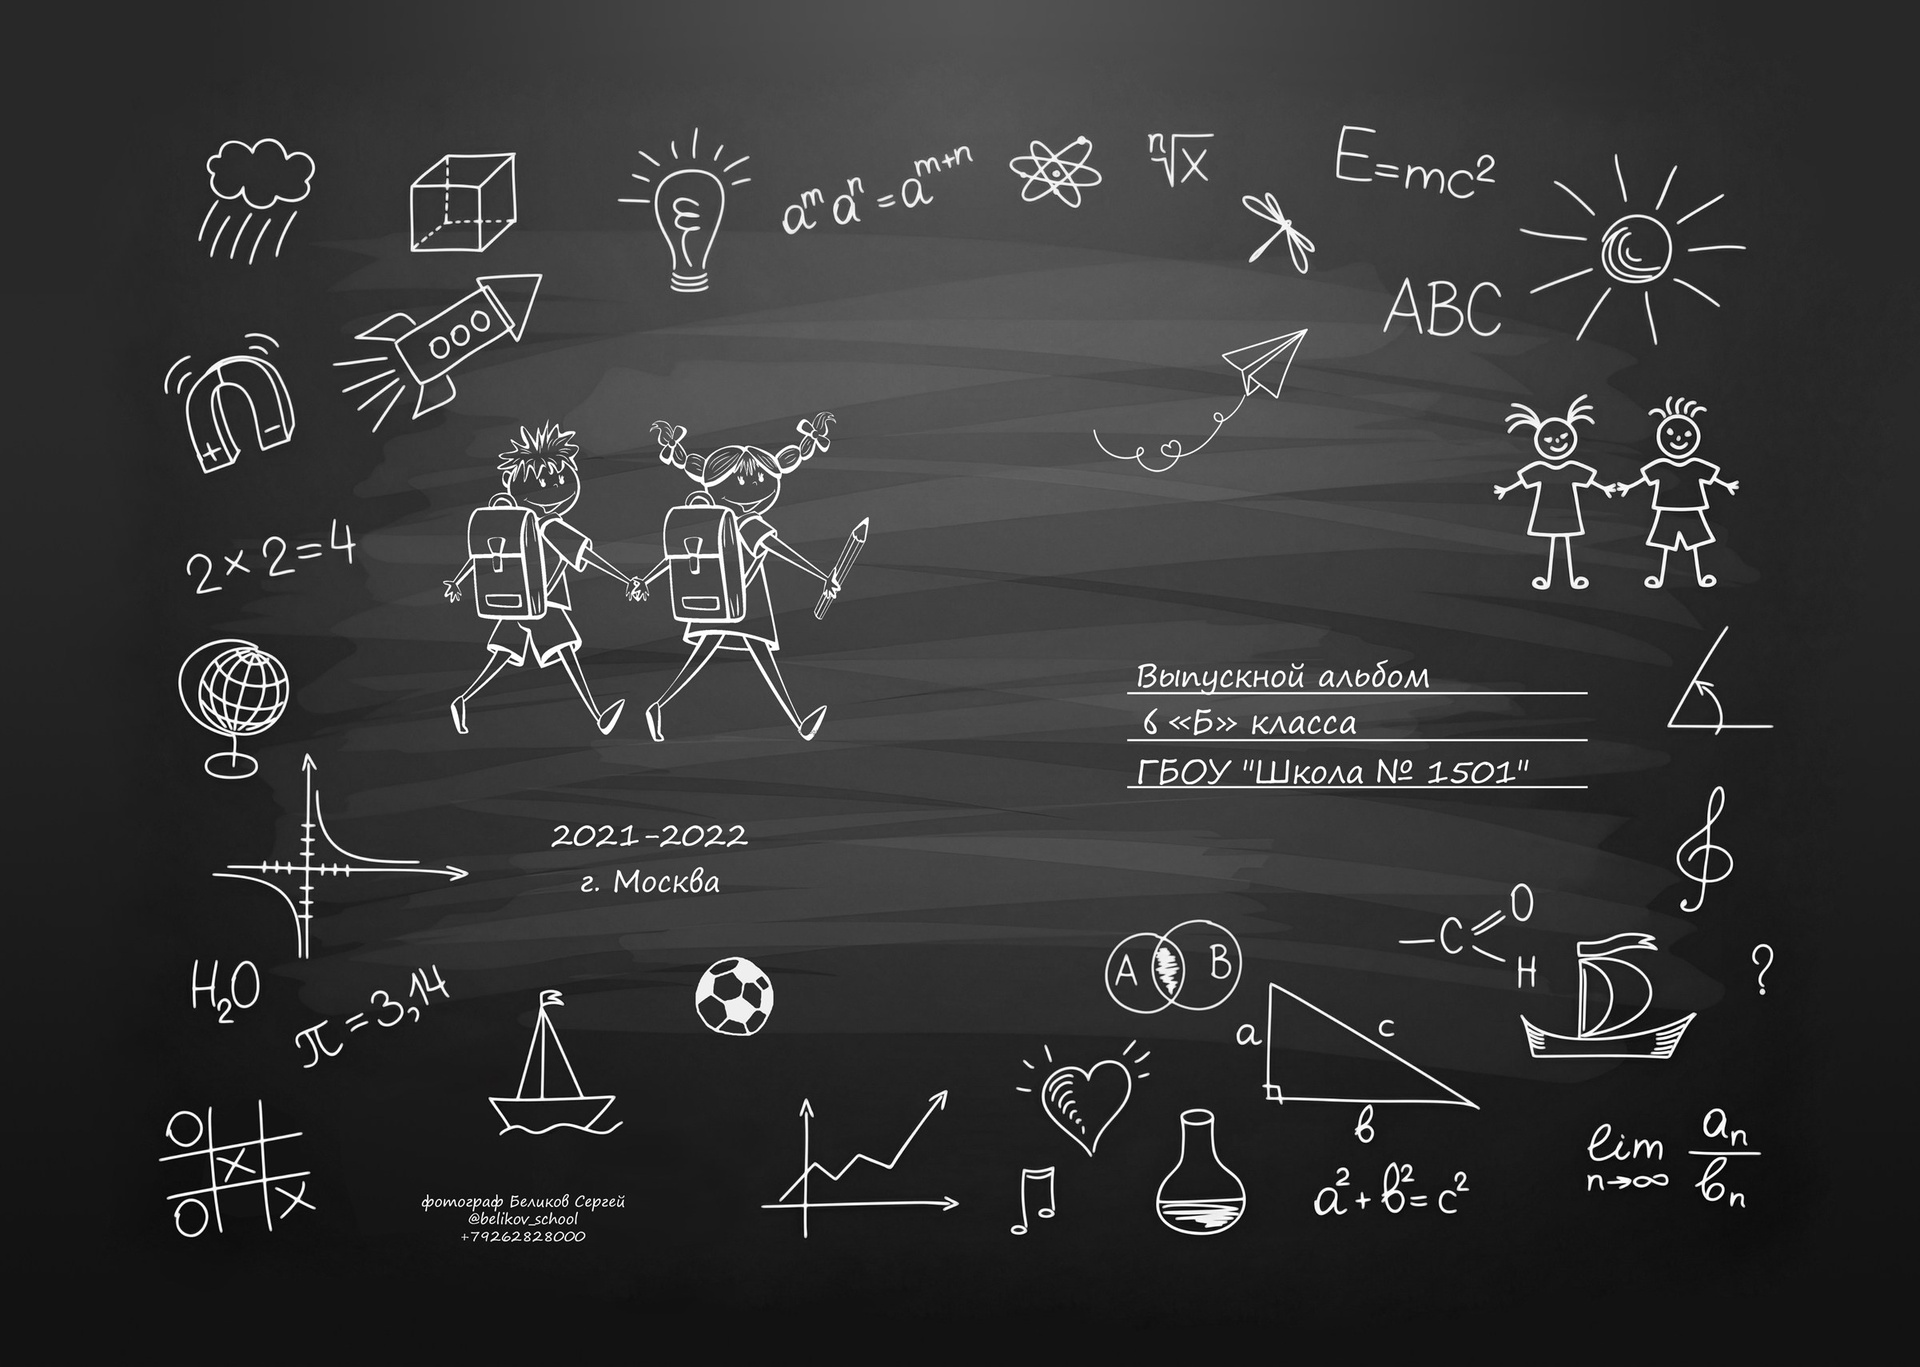 aᵐ aⁿ = aᵐ⁺ⁿ
ⁿ√x
E=mc²
ABC
+ -
2×2=4
Выпускной альбом
6 «Б» класса
ГБОУ "Школа № 1501"
2021-2022
г. Москва
H₂O
π=3,14
A B
a
c
в
-C
O
H
?
O
X
O X
a²+в²=c²
lim n→∞ aₙ/вₙ
фотограф Беликов Сергей
@belikov_school
+79262828000